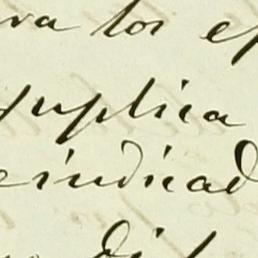 va los ef
suplica
eindicad